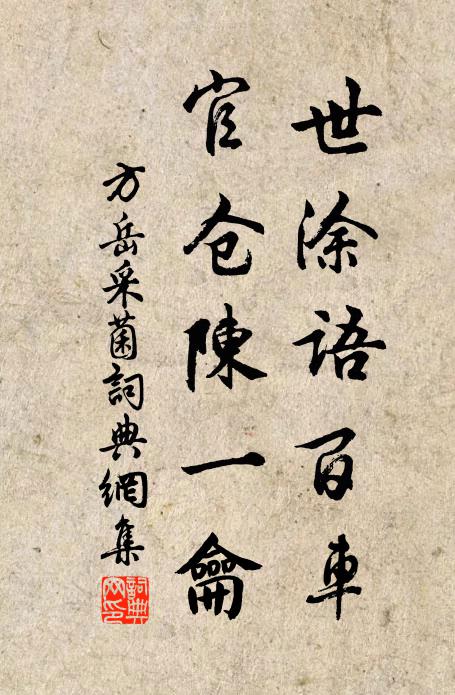 世涂语百车
官仓陳一龠
方岳采菌詞典網集
詞典网印